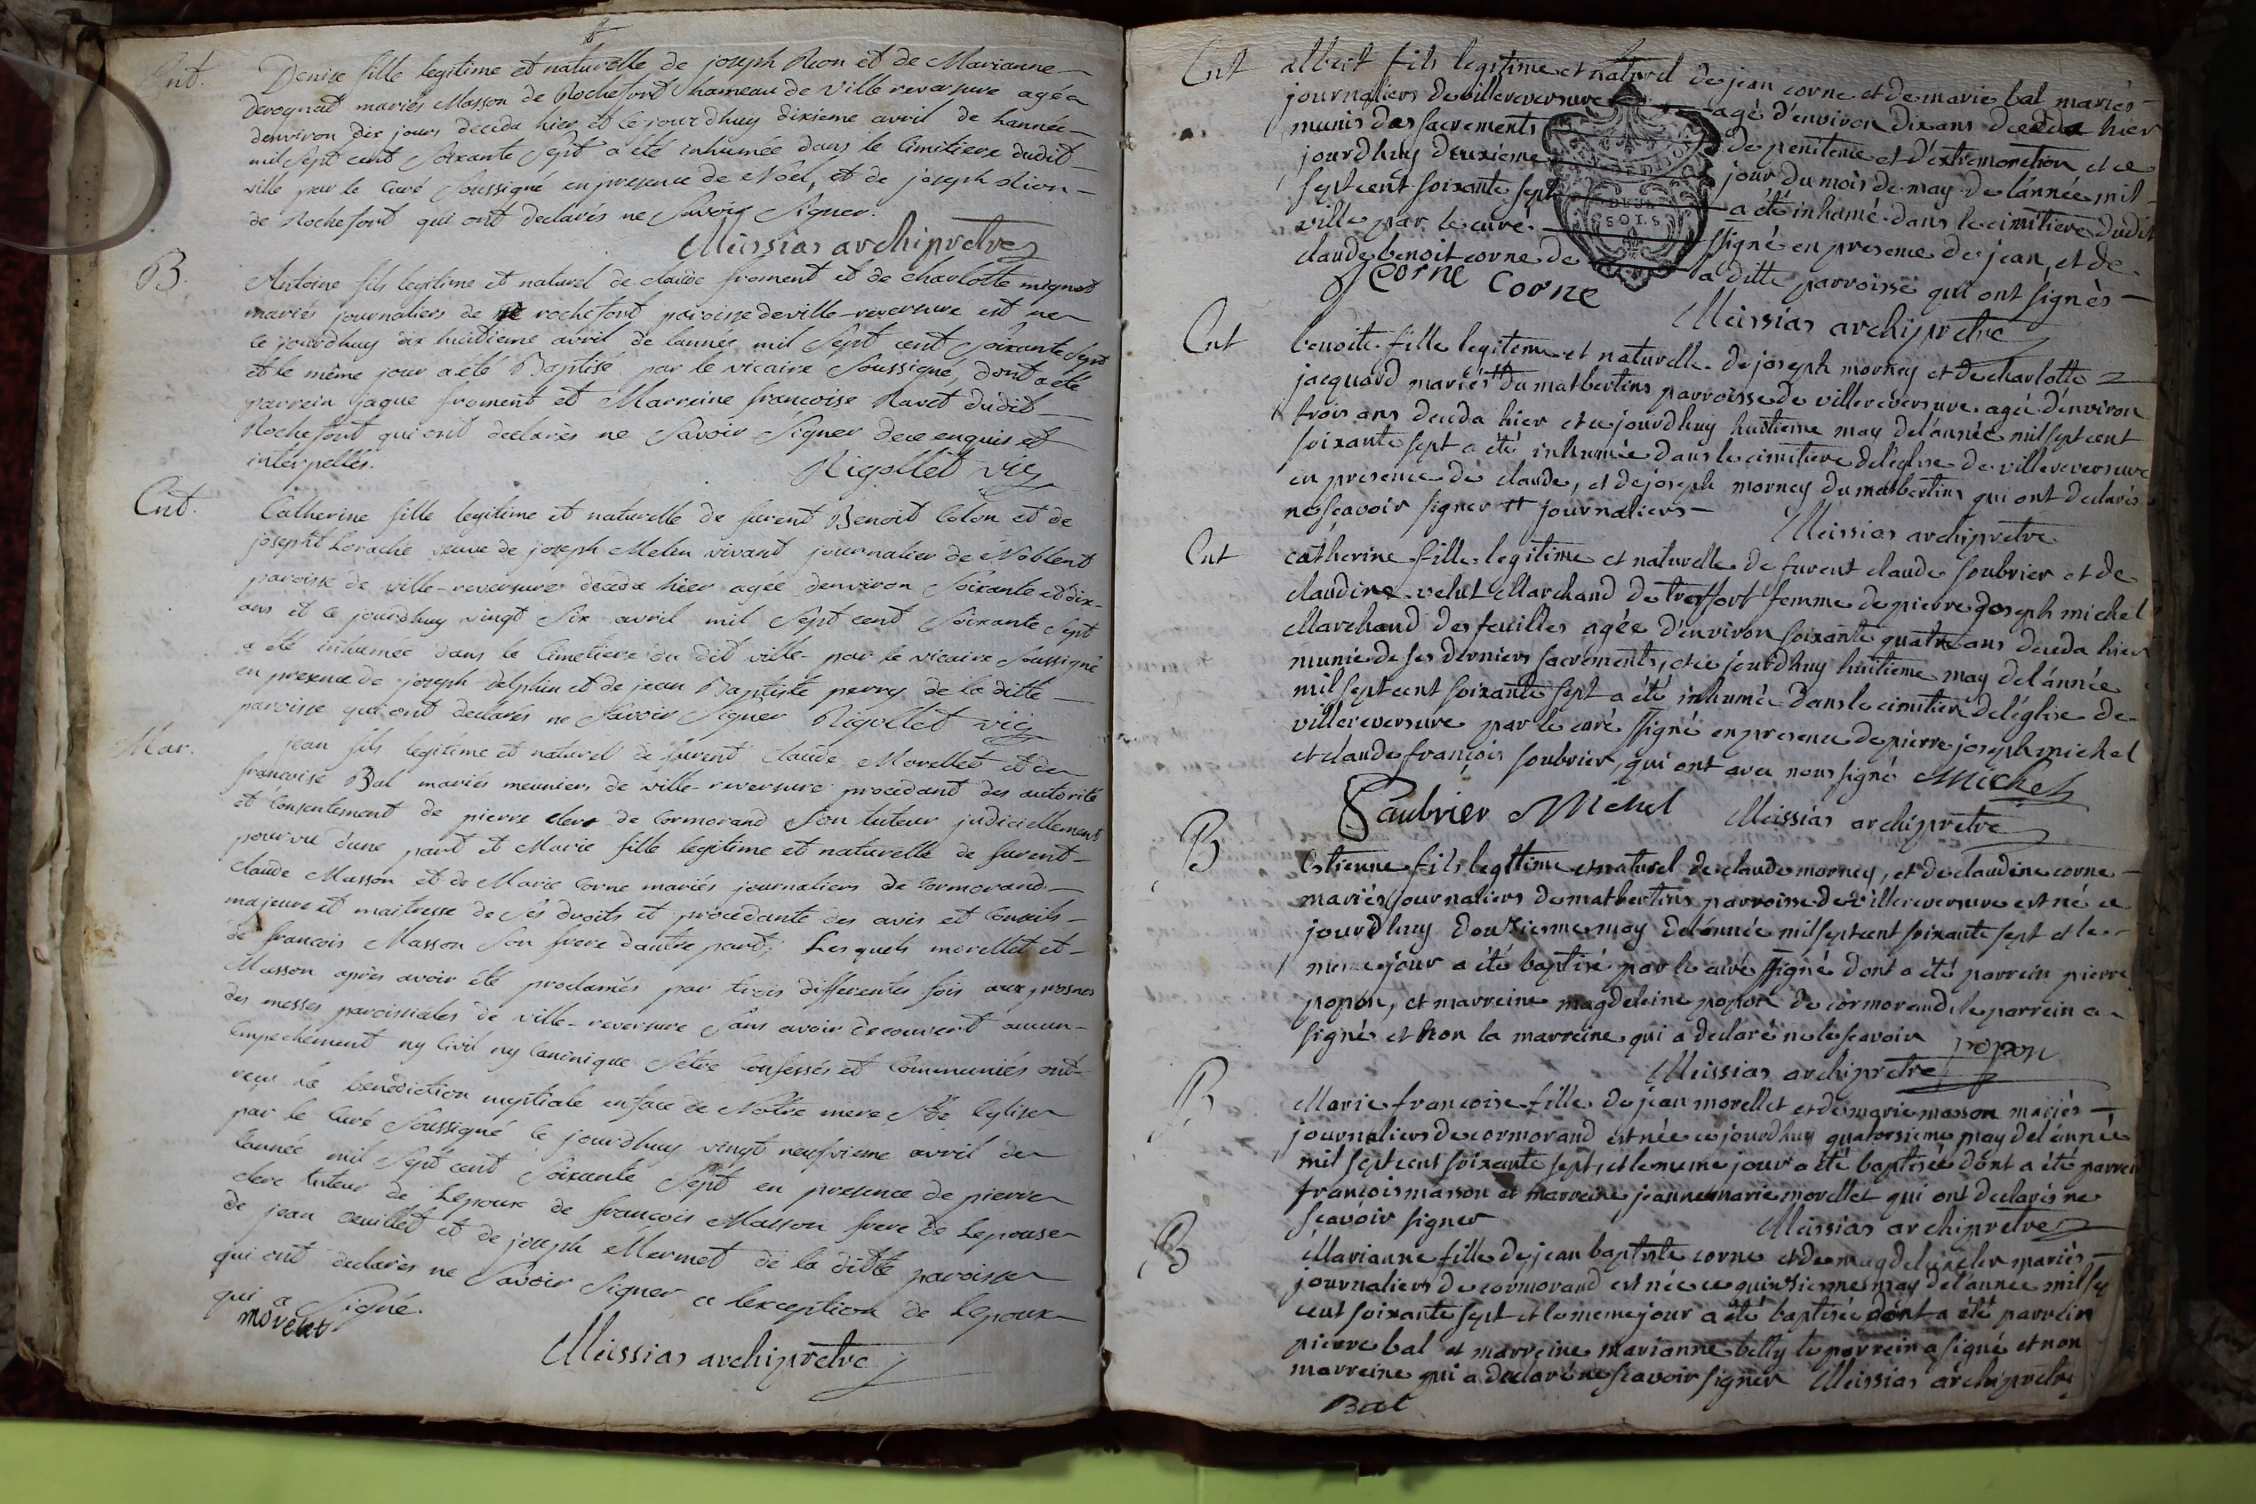 Ent. Denise fille legitime et naturelle de joseph Rion et de Marianne
devognat mariés Masson de Rochefort hameau de Ville reversure agée
denviron dix jours deceda hier et le jourdhuy dixieme avril de lannée
mil sept cent soixante sept a été inhumée dans le Cimitiere dudit
ville par le Curé soussigné en presence de Noël, et de joseph Rion
de Rochefort qui ont declarés ne Savoir Signer.
Meissias archipretre
B. Antoine fils legitime et naturel de claude froment et de charlotte mignot
mariés journaliers de rochefort paroisse de ville-reversure est né
ce jourdhuy dix huitieme avril de lannée mil Sept cent Soixante Sept
et le même jour a été Baptisé par le vicaire Soussigné, dont a été
parrein jaque froment et Marreine francoise Ravet dudit
Rochefort qui ont declarés ne Savoir Signer de ce enquis et
interpellés.
Rigollet vic
Ent. Catherine fille legitime et naturelle de furent Benoit Colon et de
josepht veuve de joseph Melin vivant journalier de Noblent
paroisse de ville-reversure deceda hier agée denviron Soixante et dix
ans et ce jourdhuy vingt Six avril mil Sept cent Soixante Sept
a été inhumée dans le Cimetiere du dit ville par le vicaire Soussigné
en presence de joseph delphin et de jean Baptiste perry de la ditte
paroisse qui ont declarés ne Savoir Signer Rigollet vic
Mar. jean fils legitime et naturel de furent Claude Morellet et de
francoise Bal mariés meuniers de ville-reversure procedant des autorité
et Consentement de pierre clerc de Cormorand Son tuteur judiciellement
pourvu d'une part et Marie fille legitime et naturelle de furent
Claude Masson et de Marie Corne mariés journaliers de Cormorand
majeure et maitresse de Ses droits et procedante des avis et Conseils
de francois Masson Son frere dautre part, Lesquels morellet et
Masson après avoir été proclamés par trois differentes fois aux prosnes
des messes paroissiales de ville-reversure Sans avoir decouvert aucun
Empechement ny Civil ny Canonique Setre Confessés et Communiés ont
reçu la benediction nuptiale en face de Nôtre mere Ste Eglise
par le Curé Soussigné ce jourdhuy vingt neufvieme avril de
lannée mil Sept cent Soixante Sept en presence de pierre
clerc tuteur de Lepoux de francois Masson frere de Lepouse
de jean et de joseph Mermet de la ditte paroisse
qui ont declarés ne Savoir Signer a lexception de Lepoux
qui a Signé.
morelet
Meissias archipretre
Ent albert fils legitime et naturel de jean corne et de marie bal mariés
journaliers de villereversure agé d'environ dix ans deceda hier
munis des sacrements de penitence et d'extremonction et ce
jourdhuy deuxieme jour du mois de may de l'année mil
sept cent soixante sept a été inhumé dans le cimitiere dudit
ville par le curé ssigné en presence de jean, et de
claude benoit corne de la ditte parroisse qui ont signés
DEUX
SOLS
J Corne Corne
Meissias archipretre
Ent benoite fille legitime et naturelle de joseph morney et de charlotte
jacquard mariés # du matbertins parroisse de villereversure agée d'environ
trois ans deceda hier et ce jourdhuy huitieme may de l'année mil sept cent
soixante sept a été inhumée dans le cimitiere de l'eglise de villereversure
en presence de claude, et de joseph morney du matbertins qui ont declarés
ne scavoir signer # journaliers
Meissias archipretre
Ent catherine fille legitime et naturelle de furent claude soubrier et de
claudine velut Marchand de treffort femme de pierre joseph michel
Marchand des feuilles agée d'environ soixante quatre ans deceda hier
munie de ses derniers sacrements, et ce jourdhuy huitieme may de l'année
mil sept cent soixante sept a été inhumée dans le cimitier de l'église de
villereversure par le curé ssigné en presence de pierre joseph michel
et claude françois soubrier, qui ont avec nous signé Michel
Saubrier Michel Meissias archipretre
B Estienne fils legitime et naturel de claude morney, et de claudine corne
mariés journaliers de matbertins parroisse de villereversure est né ce
jourdhuy douzieme may de l'année mil sept cent soixante sept et le
meme jour a été baptisé par le curé ssigné dont a été parrein pierre
popon, et marreine magdeleine popon de cormorand, le parrein a
signé et non la marreine qui a declaré ne le scavoir
popon
Meissias archipretre
B Marie francoise fille de jean morellet et de marie masson mariés
journaliers de cormorand est née ce jourdhuy quatorsieme may de l'année
mil sept cent soixante sept, et le meme jour a été baptisée dont a été parrein
françois masson et marreine jeanne marie morellet qui ont declarés ne
scavoir signer
Meissias archipretre
B Marianne fille de jean baptiste corne et de magdeleine clerc mariés
journaliers de cormorand est née ce quinzieme may de l'année mil sept
cent soixante sept et le meme jour a été baptisée dont a été parrein
pierre bal et marreine marianne billy le parrein a signé et non
marreine qui a declaré ne scavoir signer Meissias archipretre
Bal